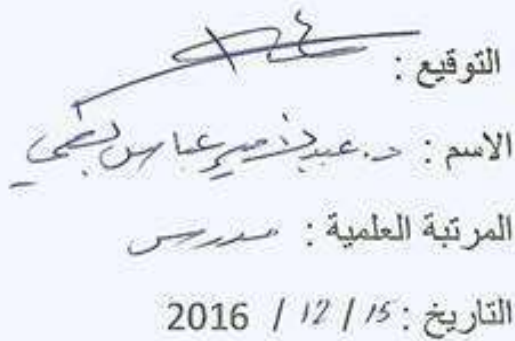 التوقيع :
الاسم : د. عبد الأمير عباس
المرتبة العلمية : مدرس
التاريخ : 15 / 12 / 2016